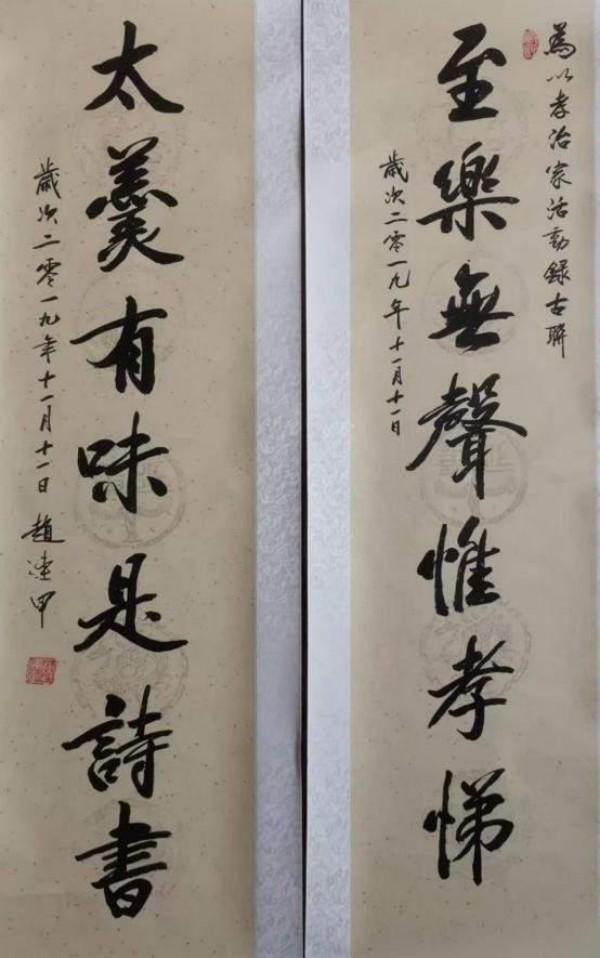 為以孝治家活動錄古聯
至樂無聲惟孝悌
歲次二零一九年十一月十一日
太羹有味是詩書
歲次二零一九年十一月十一日 趙連甲